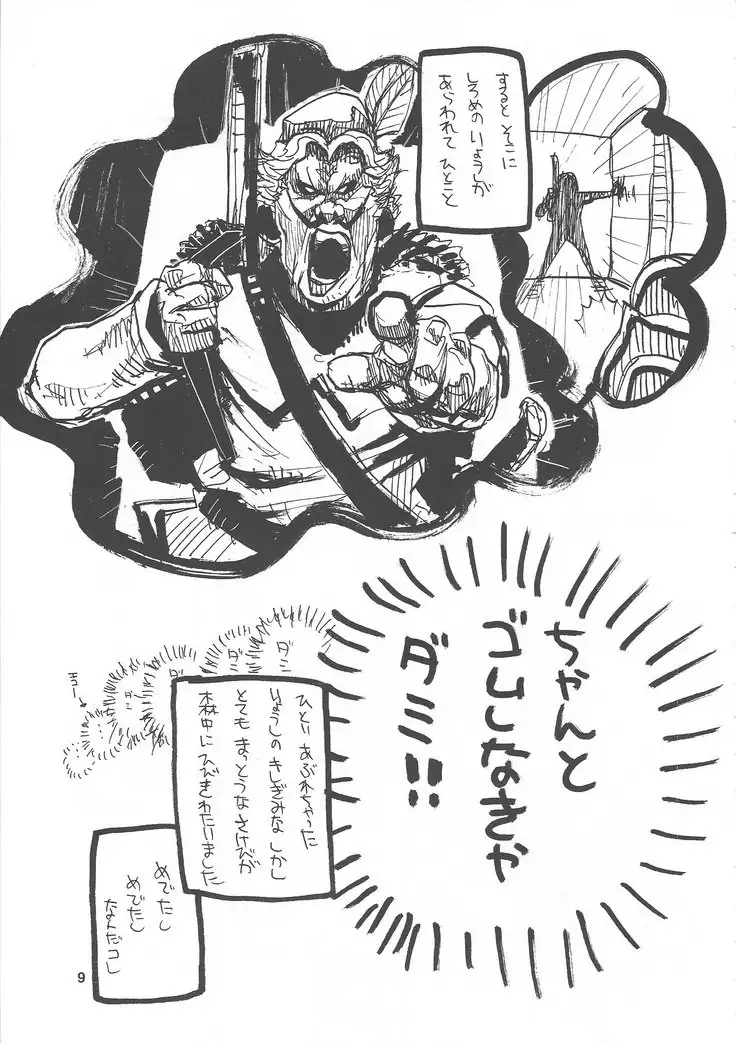 すると そこに
しろめの りょうしが
あらわれて ひとこと
ちゃんと
ゴムしなきゃ
ダミ!!
ダミ
ダ
ひとり あぶれちゃった
りょうしの きしぎみな しかし
とても まっとうな さけびが
森中に ひびきわたりました
めでたし
めでたし
なんだコレ
9